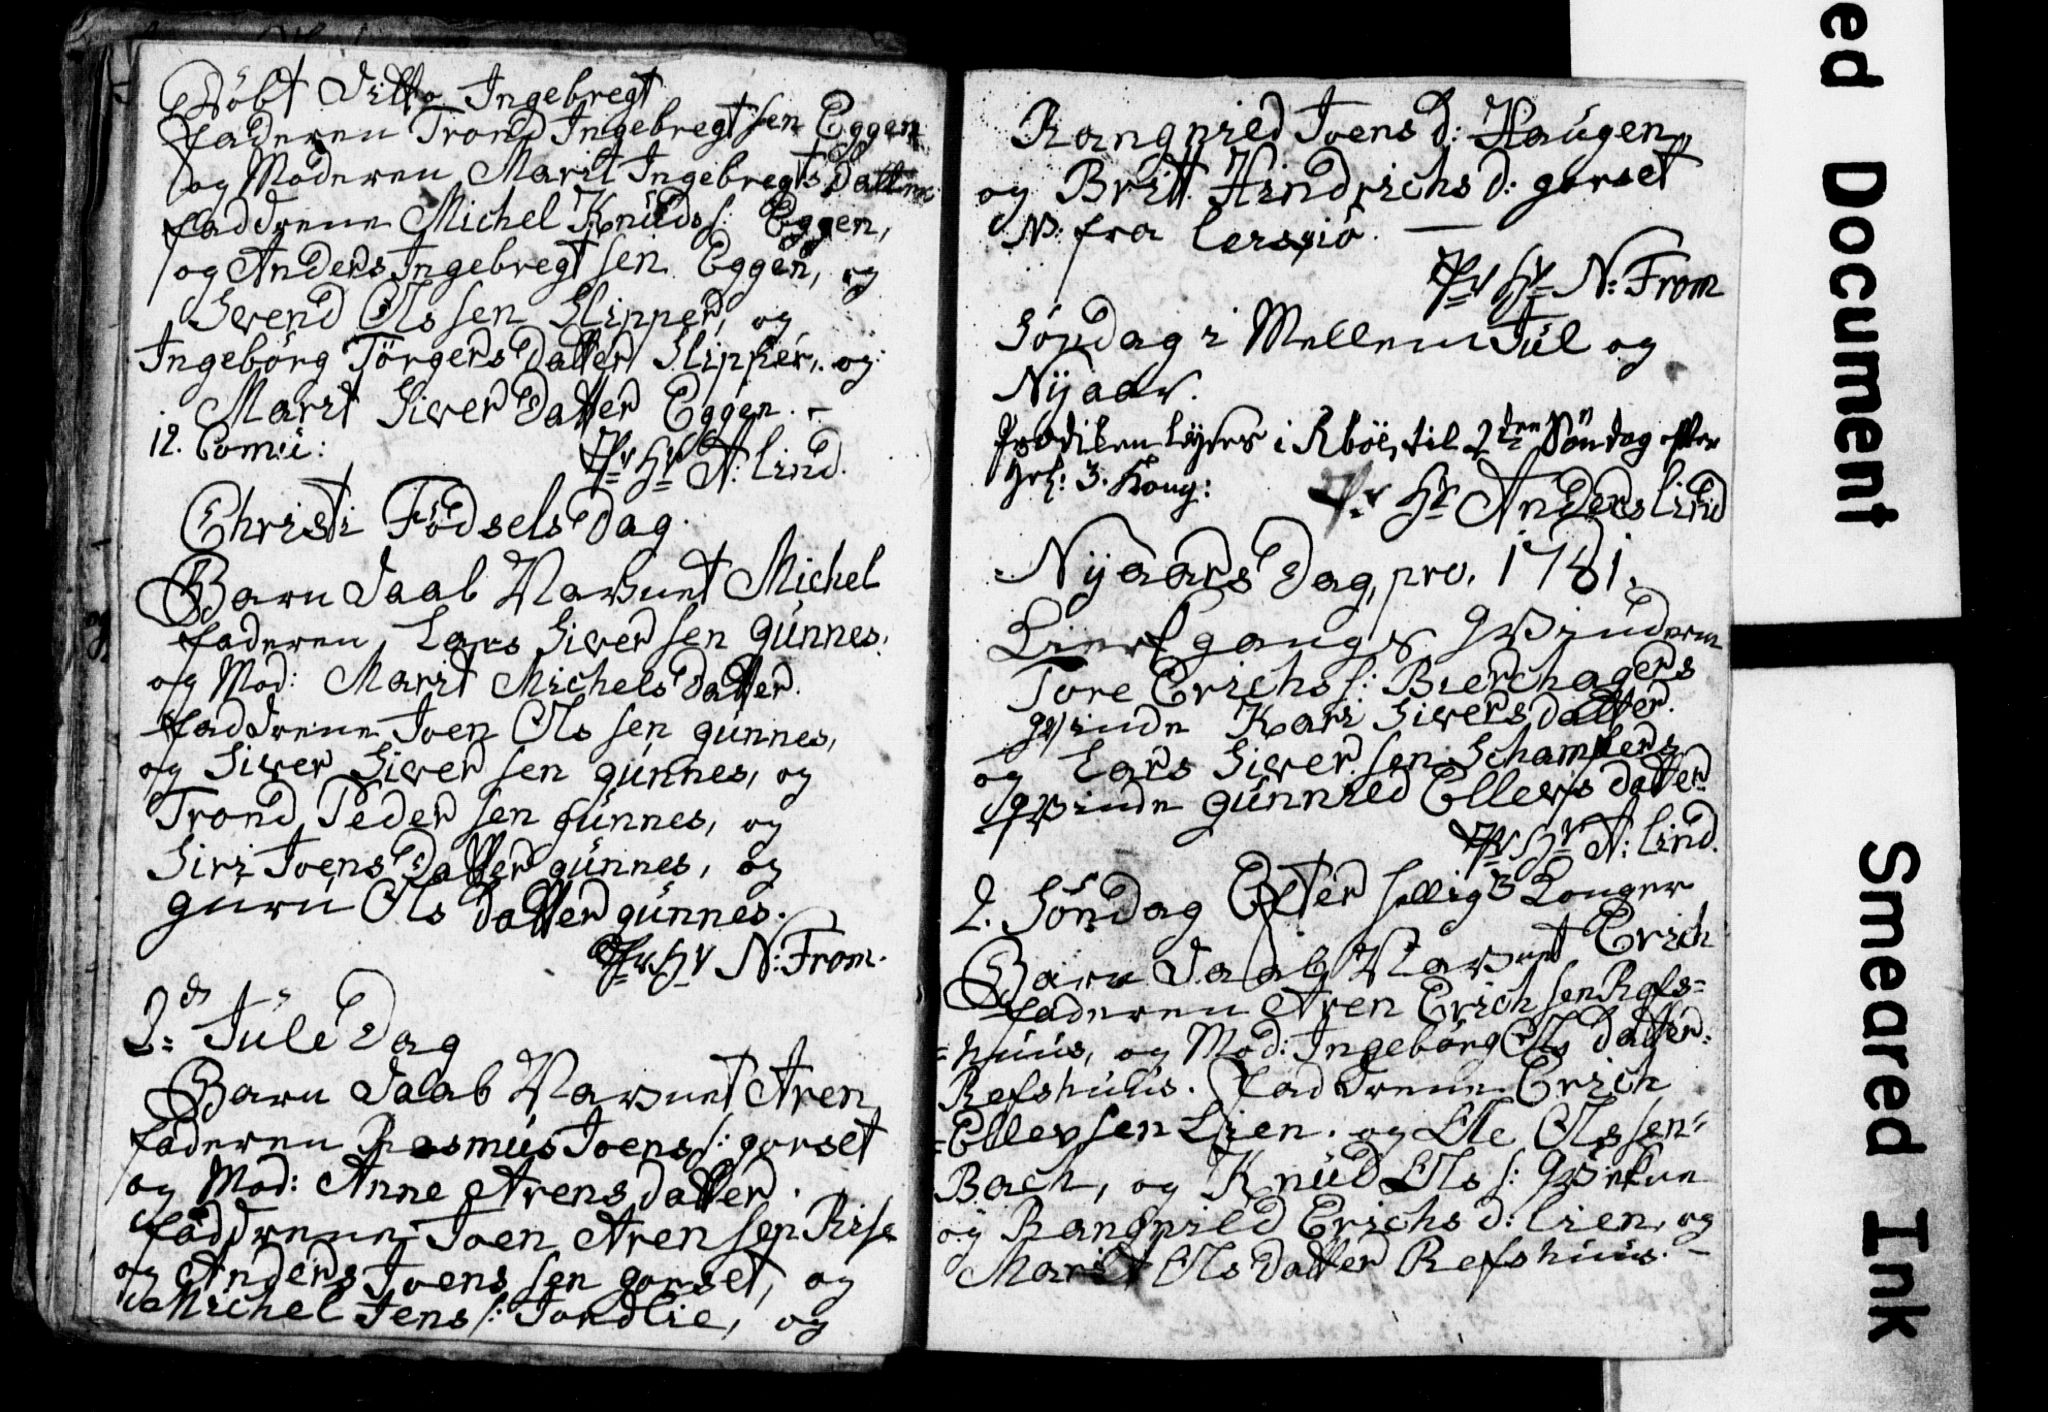 Döbt Ditto Ingebregt
faderen Trond Ingebregt sen Eggen
og Moderen Marit Ingebregts Datter
faddrene Michel Knuds s: Eggen,
og Anders Ingebregt sen Eggen, og
Svend Ols sen Slipper, og
Ingebörg Törgers Datter Slipper, og
Marit Siver Datter Eggen. -
12. Com:i: Pr Hr A: Lind.
Christi Födsels Dag.
Barn Daab Nafnet Michel
faderen, Lars Siver sen Günnes.
og Mod: Marit Michels Datter.
faddrene Joen Ols sen günnes,
og Siver Siver sen günnes, og
Trond Peder sen günnes, og
Siri Joens Datter günnes, og
guru Ols Datter günnes.
Pr Hr N: From.
2: Jule Dag
Barn Daab Nafnet Aren
faderen Rasmus Joens s: gorset
og Mod: Anne Arens Datter.
faddrene Joen Aren sen Rise
og Anders Joens sen gorset, og
Michel Jens s: Jordlie, og
Rangnild Joens d: Haugen
og Britt Hindrichs d: gorset
N: fra Lersiö. —
Pr Hr N: From
Söndag i Mellem Jul og
Nyaar.
Prædiken lyses i Rböe, til 2den Söndag efter
Hel: 3. Kong: Pr Hr Anders Lind
Nyaars Dag, pro. 1781.
Kierkgangs Qvinderne
Tore Erichs s: Bierchagers
qvinde Kari Sivers datter.
og Lars Siver sen Schamfers
qvinde günnild Ellevs datter
Pr Hr A: Lind.
2. Söndag Efter hellig 3 Konger
Barn Daab Nafnet Erich
faderen Aren Erich sen Refs=
=huus, og Mod: Ingebörg Ols datter.
Refshuus. faddrene Erich
Ellev sen Lien. og Ole Ols sen
Bach, og Knud Ols s: Qvekne
og Rangnild Erichs d: Lien, og
Marit Ols datter Refshuus. -
ed Document
Smeared Ink